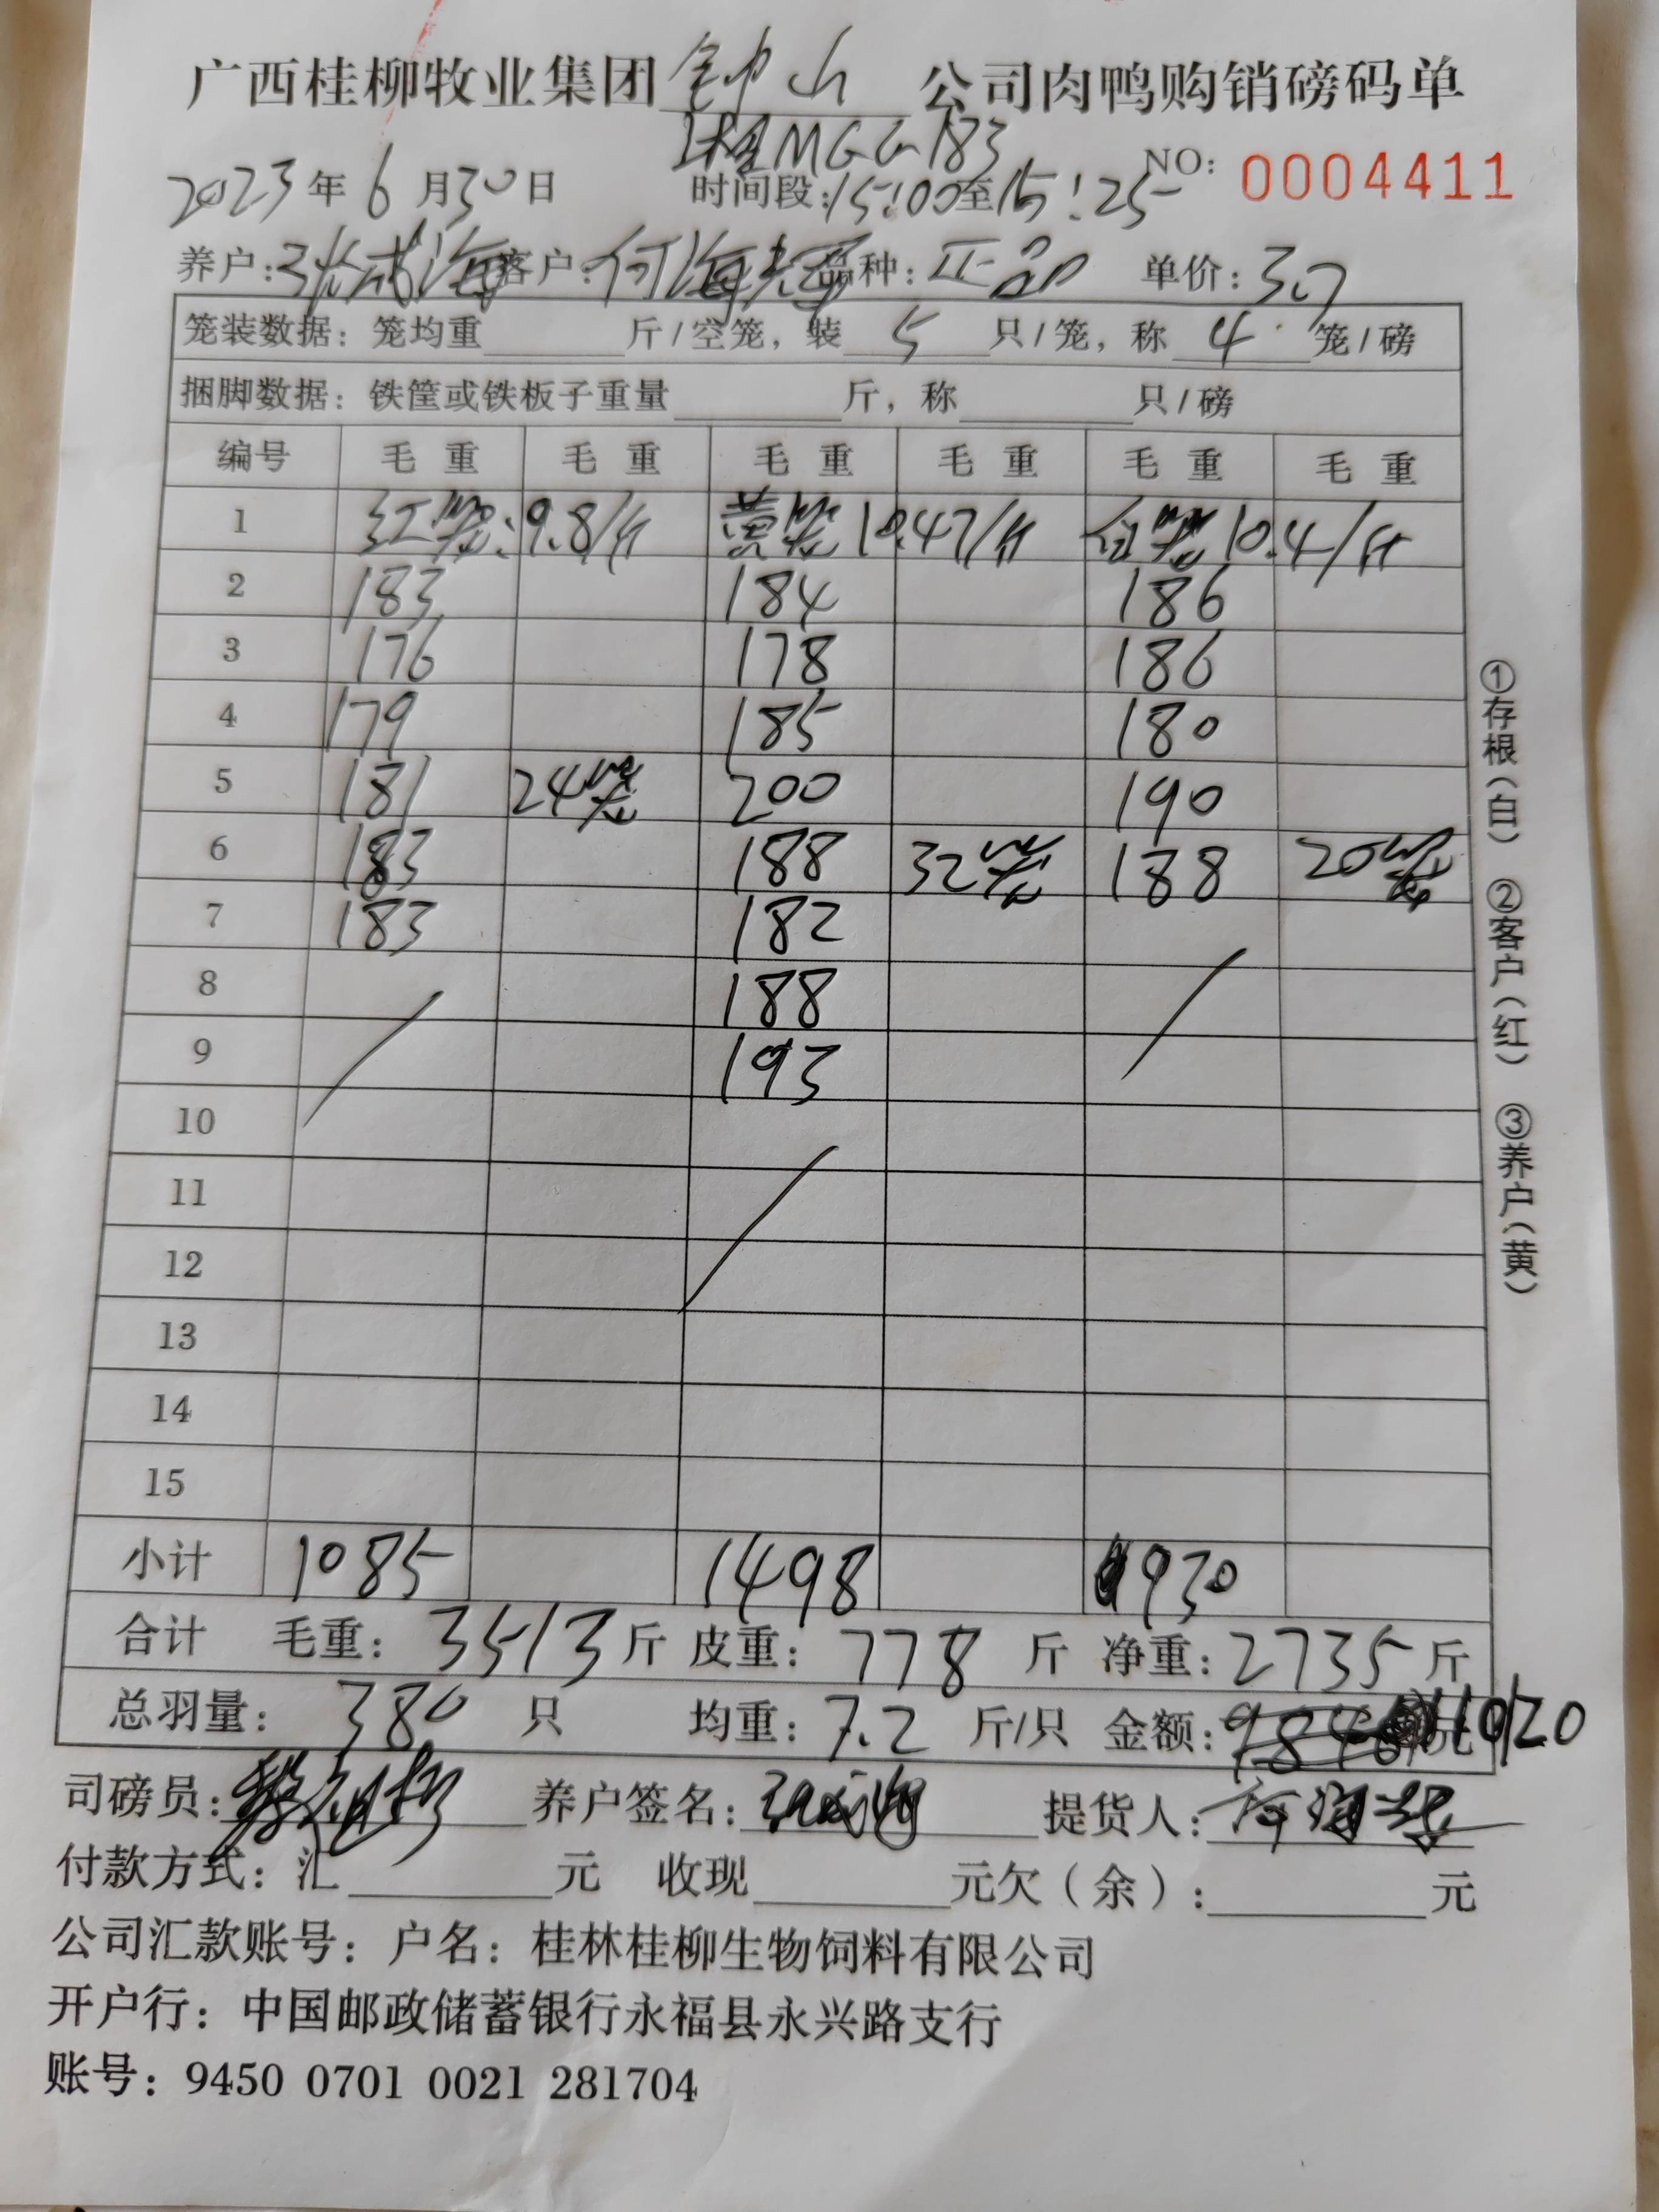 广西桂柳牧业集团 钟山 公司肉鸭购销磅码单
MGG183
NO: 0004411
2023年6月30日 时间段:15:00至15:25
养户: 客户:何海 品种:正品 单价:3.7
笼装数据：笼均重 斤/空笼，装 5 只/笼，称 4 笼/磅
捆脚数据：铁筐或铁板子重量 斤，称 只/磅
编号 毛重 毛重 毛重 毛重 毛重 毛重
1 红笼:9.8/斤 黄笼10.47/斤 笼10.4/斤
2 183 184 186
3 176 178 186
4 179 185 180
5 181 24笼 200 190
6 183 188 32笼 188 20笼
7 183 182
8 188
9 193
10
11
12
13
14
15
小计 1085 1498 930
合计 毛重：3513斤 皮重：778斤 净重：2735斤
总羽量：380只 均重：7.2斤/只 金额：10120
司磅员： 养户签名： 提货人：
付款方式：汇 元 收现 元欠（余）： 元
公司汇款账号：户名：桂林桂柳生物饲料有限公司
开户行：中国邮政储蓄银行永福县永兴路支行
账号：9450 0701 0021 281704
①存根（白） ②客户（红） ③养户（黄）